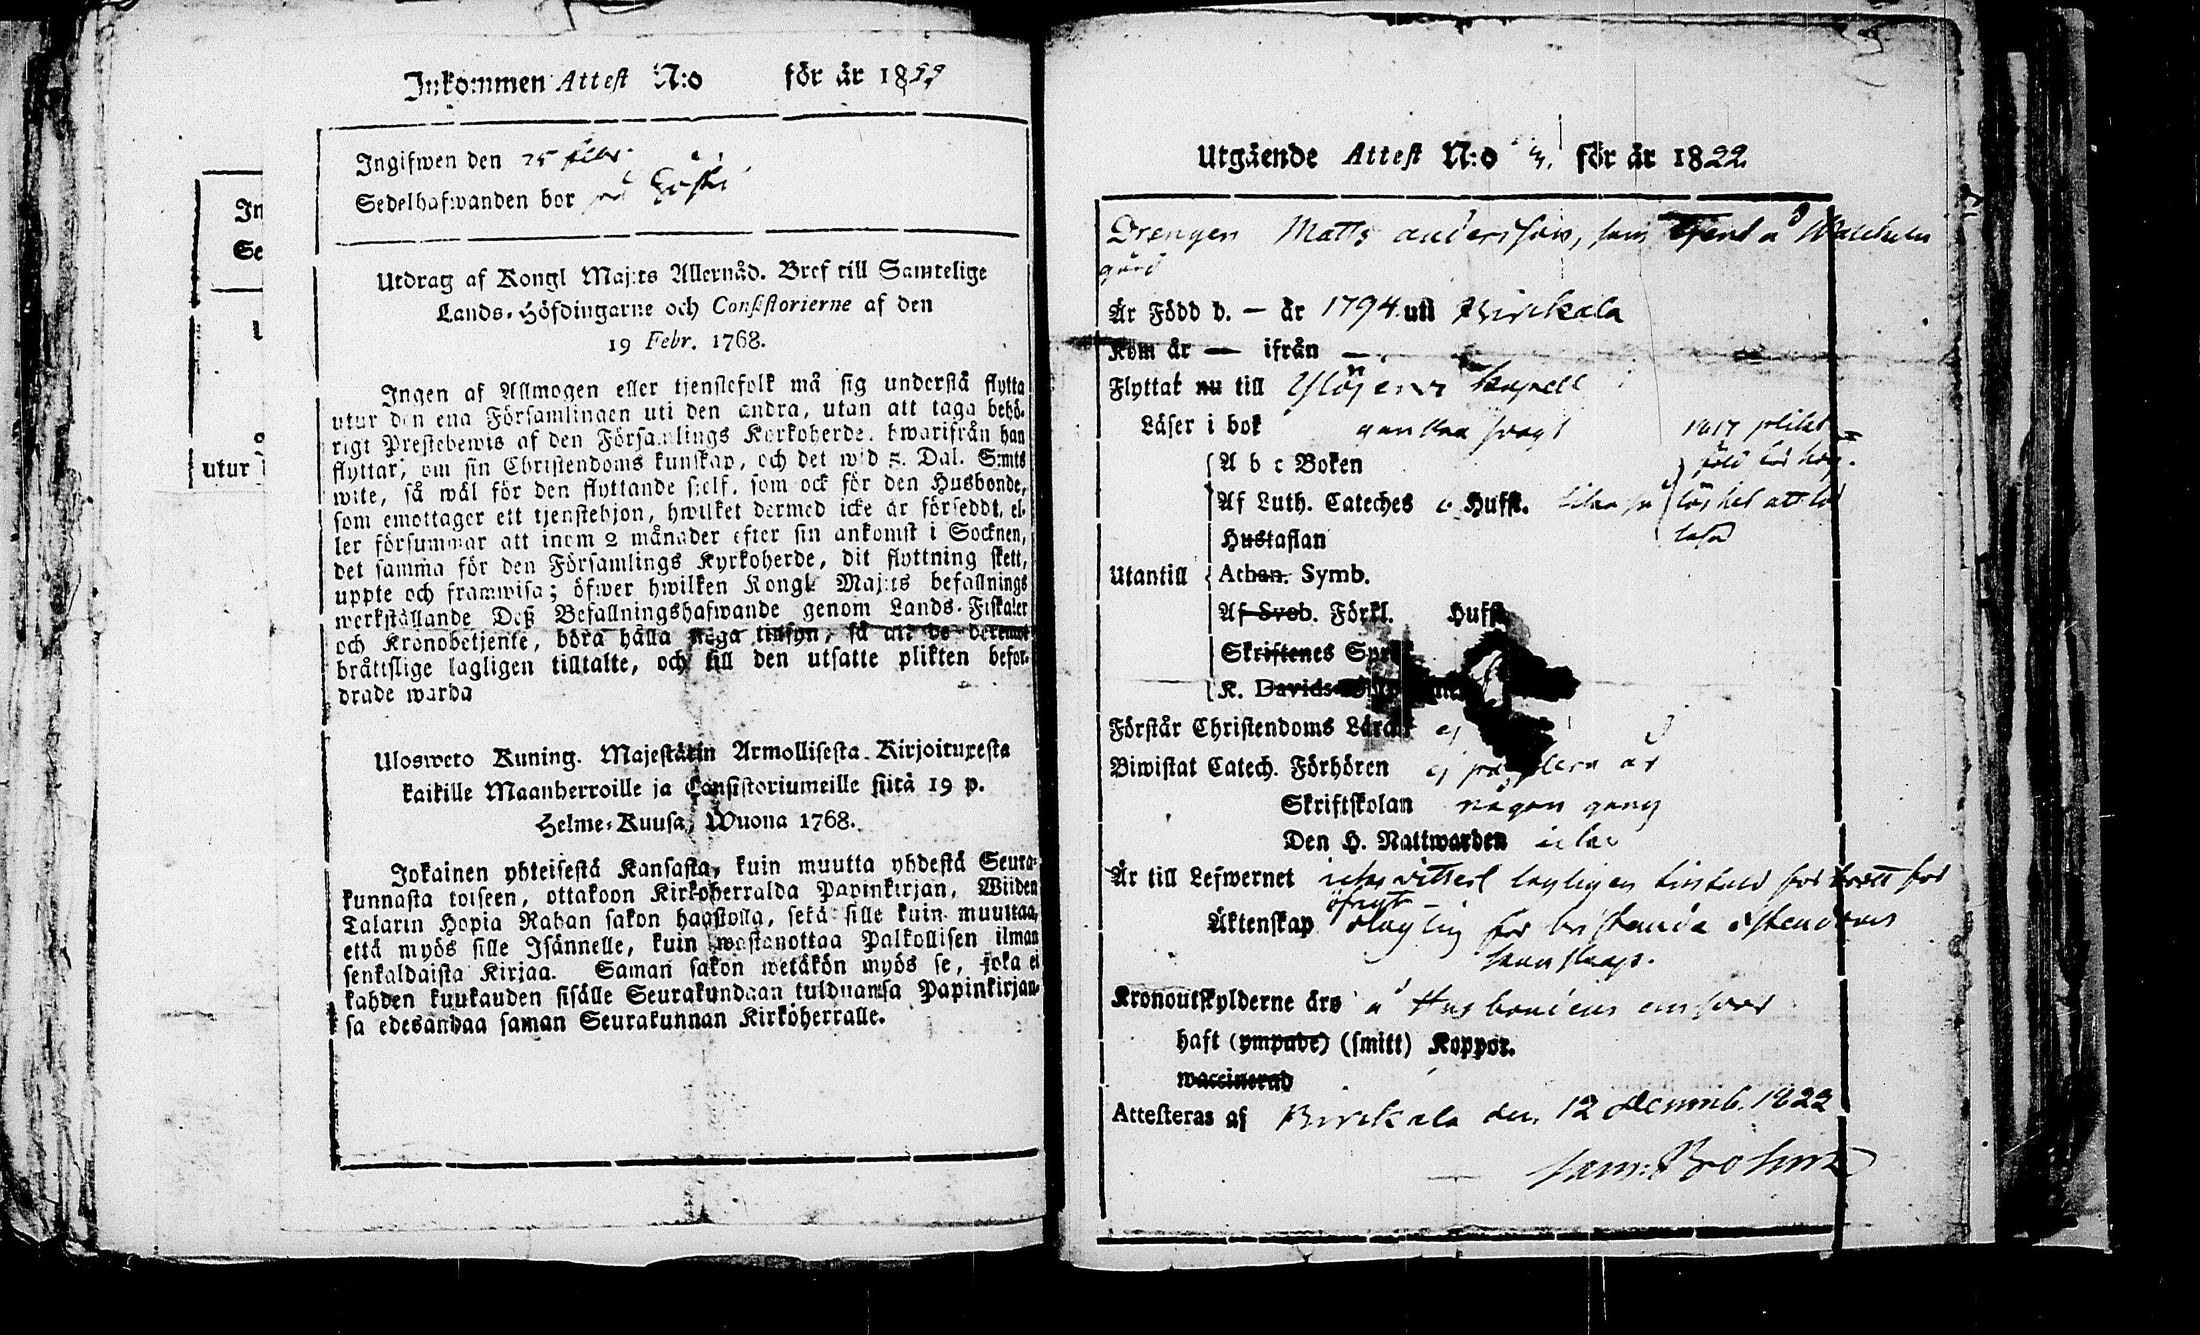 Inkommen Attest N:o för år 18
Ingifwen den 25 febr.
Sedelhafwanden bor
Utdrag af Kongl Maj:ts Allernåd. Bref till Samtelige
Lands-Höfdingarne och Consistorierne af den
19 Febr. 1768.
Ingen af Allmogen eller tjenstefolk må sig understå flytta
utur den ena Församlingen uti den andra, utan att taga behö-
rigt Prestebewis af den Församlings Kyrkoherde, hwarifrån han
flyttar, om sin Christendoms kunskap, och det wid 5. Dal. S:mts
wite, så wäl för den flyttande sjelf, som ock för den Husbonde,
som emottager ett tjenstehjon, hwilket dermed icke är förseddt, el-
ler försummar att inom 2 månader efter sin ankomst i Socknen,
det samma för den Församlings Kyrkoherde, dit flyttning skett,
uppte och framwisa; öfwer hwilken Kongl Maj:ts befallnings
werkställande Deß Befallningshafwande genom Lands-Fiskaler
och Kronobetjente, böra hålla noga tillsyn, så att de deremot
bråttslige lagligen tilltalte, och till den utsatte plikten befor-
drade warda
Ulosweto Kuning. Majestätin Armollisesta Kirjoituxesta
kaikille Maanherroille ja Consistoriumeille siitä 19 p.
Helme-Kuusa, Wuona 1768.
Jokainen yhteisestä Kansasta, kuin muutta yhdestä Seura-
kunnasta toiseen, ottakoon Kirkoherralda Papinkirjan, Wiiden
Talarin Hopia Rahan sakon haastolla, sekä sille kuin muuttaa,
että myös sille Isännelle, kuin wastanottaa Palkollisen ilman
senkaldaista Kirjaa. Saman sakon wetäkön myös se, joka ei
kahden kuukauden sisälle Seurakundaan tulduansa Papinkirjan-
sa edesandaa saman Seurakunnan Kirkoherralle.
In
Se
utur
Utgående Attest N:o för år 1822.
Drengen Matts andersson, som tjent å
gård
Är Född d. — år 1794 uti Birckala
Kom år — ifrån —
Flyttat nu till Ylöjervi kapell
Läser i bok ganska swagt
1817 plikt
A b c Boken
Af Luth. Cateches o Huffl. lika så
Hustaflan
Utantill Athan. Symb.
Af Sveb. Förkl. Huffl
Skriftenes Språk
K. Davids
Förstår Christendoms Läran ej
Biwistat Catech. Förhören ej på flera år
Skriftskolan någon gång
Den H. Nattwarden
Är till Lefwernet lagligen för brott
Äktenskap öfrigt olaglig för bristande
kunskap.
Kronoutskylderne äro å Husbondens answar
haft (ympade) (smitt) Koppor.
waccinerad
Attesteras af Birckala den 12 Decemb. 1822